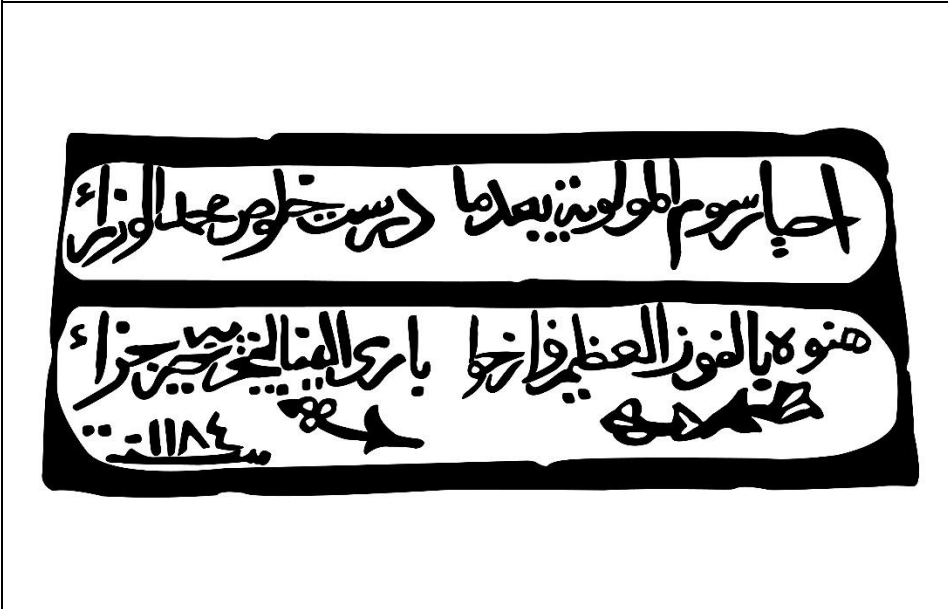 احيا رسوم المولوية بعدما درست خلوص محمد الوزراء
هنوه بالفوز العظيم فارخوا باري البنا خير جزاء
سنة ١١٨٤